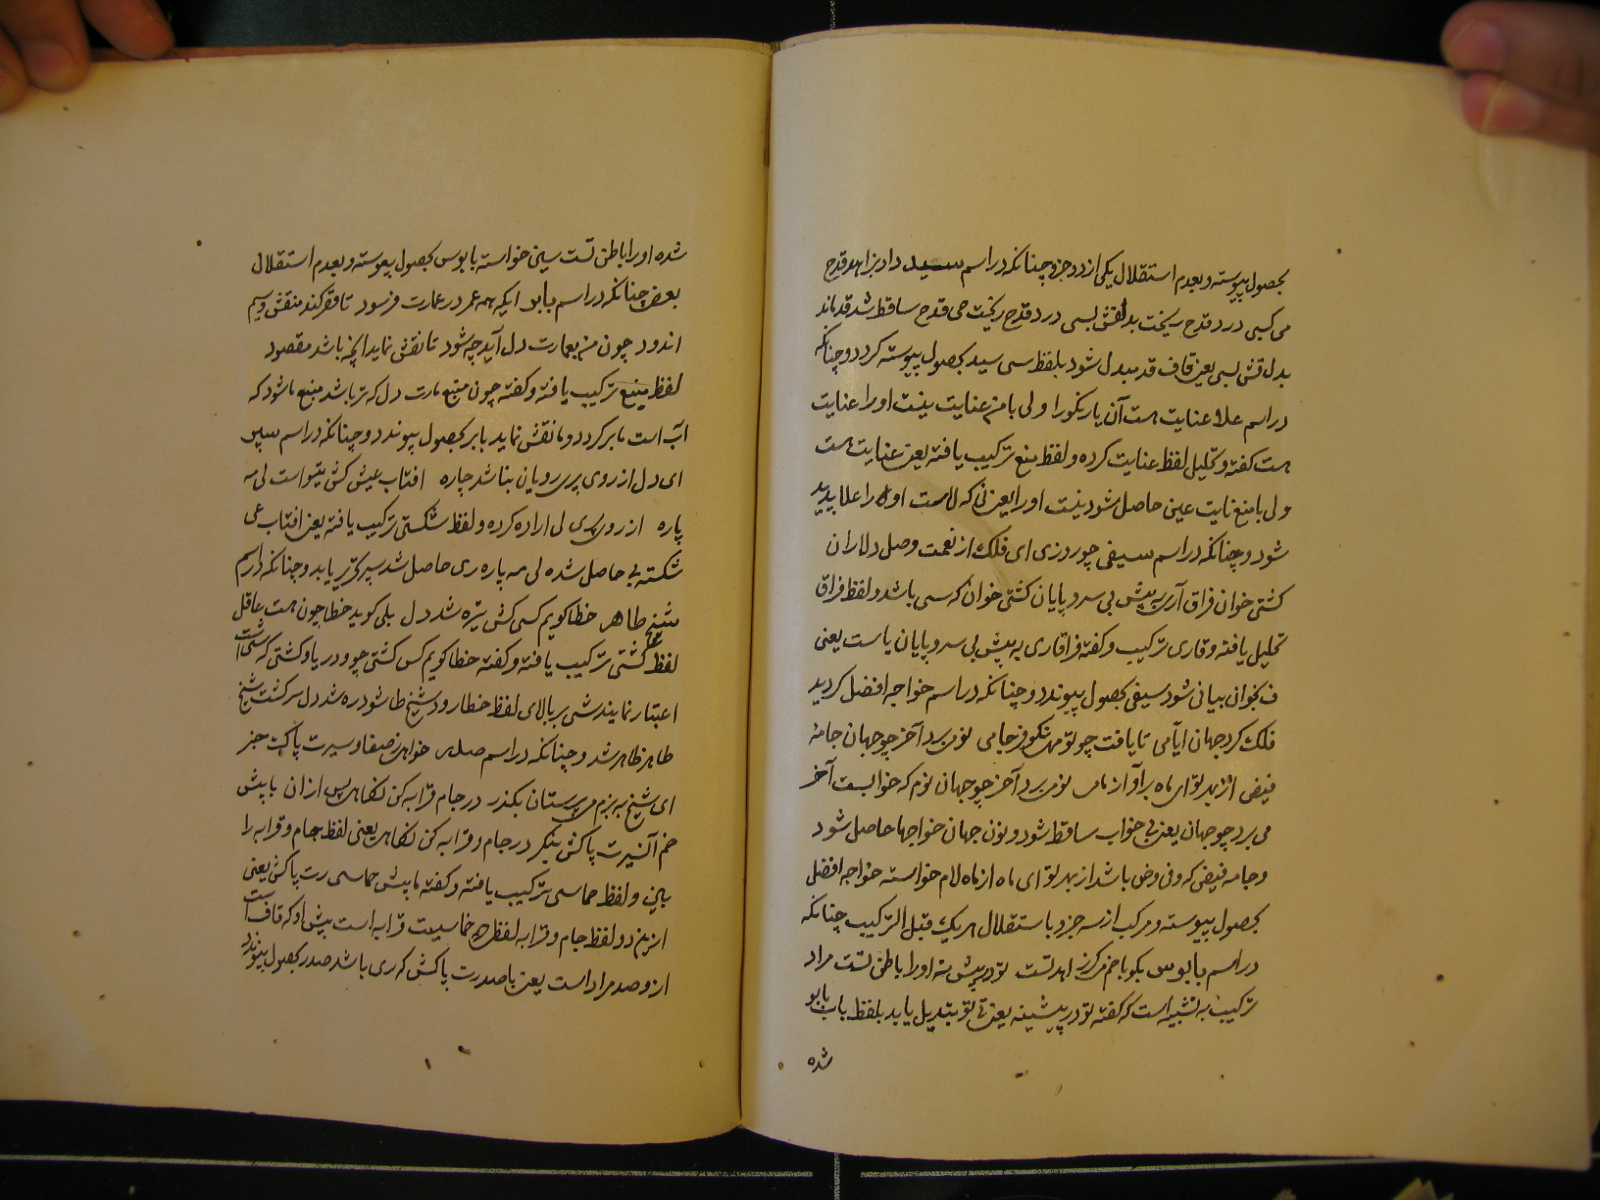 بحصول پیوسته و بعدم استقلال یکی از دو جزو چنانکه در اسم سید داد بزاهد قدح
می کسی درد قدح ریخت بد لقش بسی درد قدح ریخت می قدح ساقط شد قد ماند
بدل قش بسی یعنی قاف قد مبدل شود بلفظ سی سید بحصول پیوسته کردد و چنانکه
در اسم علا عنایت هست آن یار نکو را ولی با من عنایت نیست او را عنایت
هست کفته و تحلیل لفظ عنایت کرده و لفظ منع ترکیب یافته یعنی عنایت هست
ولی با منع نایت عین حاصل شود نیست او را یعنی که لاست او را علا پدید
شود و چنانکه در اسم سیفی چو روزی ای فلک از نعمت وصل دلاران
کشتی خوان فراق آری به پیش بی سر و پایان کشتی خوان که سی باشد و لفظ فراق
تحلیل یافته و قاری ترکیب و کفته فراقاری به پیش بی سر و پایان یاست یعنی
ف بخوان بیانی شود سیفی بحصول پیوندد و چنانکه در اسم خواجه افضل کردید
فلک کرد جهان ایامی تا یافت چو تو مهر نکو فرجامی نوم برد آخر چو جهان جامهٔ
فیضی از بهر تو ای ماه برآواز نامی نوم برد آخر چو جهان نوم که خوابست آخر
می برد چو جهان یعنی بی خواب ساقط شود و نون جهان خواجها حاصل شود
و جامه فیض که و فی وض باشد از بهر تو ای ماه از ماه لام خواسته خواجه افضل
بحصول پیوسته و مرکب از سه جزو با استقلال هر یک قبل الترکیب چنانکه
در اسم بابوس بکو با خم مرکز اهد تست تو در پیش نه او را باطن تست مراد
ترکیب به تشبیه است که کفته تو در پیشینه یعنی تی تو بتدیل یابد بلفظ باب بابو
شده
شده او را باطن تست سین خواسته بابوس بحصول پیوسته و بعدم استقلال
بعض چنانکه در اسم بابر ایکه همه عمر در عمارت فرسود تا فقر کند منقش و سیم
اندود چون من بعمارت دل آید چه شود تا نقش نماید انچه باشد مقصود
لفظ منبع ترکیب یافته و کفته چون منبع مارت دل که تر باشد منبع ما شود که
آب است مابر کردد و ما نقش نماید بابر بحصول پیوندد و چنانکه در اسم سپر
ای دل از روی پری رویان بنا شد چاره افتاب عیش کش بتو است لی مه
پاره از روی پری لی اراده کرده و لفظ شکستی ترکیب یافته یعنی افتاب عی
شکسته بی حاصل شده لی مه پاره ری حاصل شد سپر تحریر یابد و چنانکه در اسم
شیخ طاهر خطا کویم کسی کش تیزه شد دل بلی کوید خطا چون هست غافل
لفظ کشتی ترکیب یافته و کفته خطا کویم کس کشتی چو و در یا و کشتی که شی است
اعتبار نمایند شی بر بالای لفظ خطا رود شیخ طا شود ره شد دل سر کشت شیخ
طاهر ظاهر شد و چنانکه در اسم صدر خواهی صفا و سیرت پاکت جز
ای شیخ به بزم می پرستان بکذر در جام قرابه کن نکاهی پس از ان با پیش
خم آن سیرت پاکش بنکر در جام و قرابه کن نکاهی یعنی لفظ جام و قرابه را
ببین و لفظ خماسی ترکیب یافته و کفته با پیش خماسی رت پاکش یعنی
از بین دو لفظ جام و قرابه لفظ که خماسیت قرابه است پیش او که قاف است
از و صد مراد است یعنی با صد رت پاکش که ری باشد صدر بحصول پیوندد